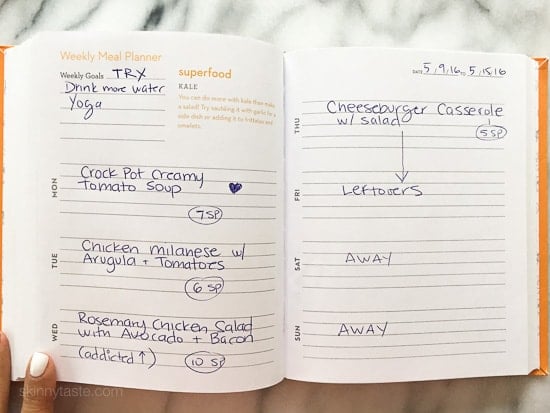 Weekly Meal Planner
Weekly Goals TRY
Drink more water
Yoga
superfood
KALE
You can do more with kale than make
a salad! Try sautéing it with garlic for a
side dish or adding it to frittatas and
omelets.
MON
Crock Pot Creamy
Tomato Soup
7 SP
TUE
Chicken milanese w/
Arugula + Tomatoes
6 SP
WED
Rosemary Chicken Salad
with Avocado + Bacon
(addicted ↑)
10 SP
DATE 5/9/16 to 5/15/16
THU
Cheeseburger Casserole
w/ salad
5 SP
FRI
Leftovers
SAT
AWAY
SUN
AWAY
skinnytaste.com